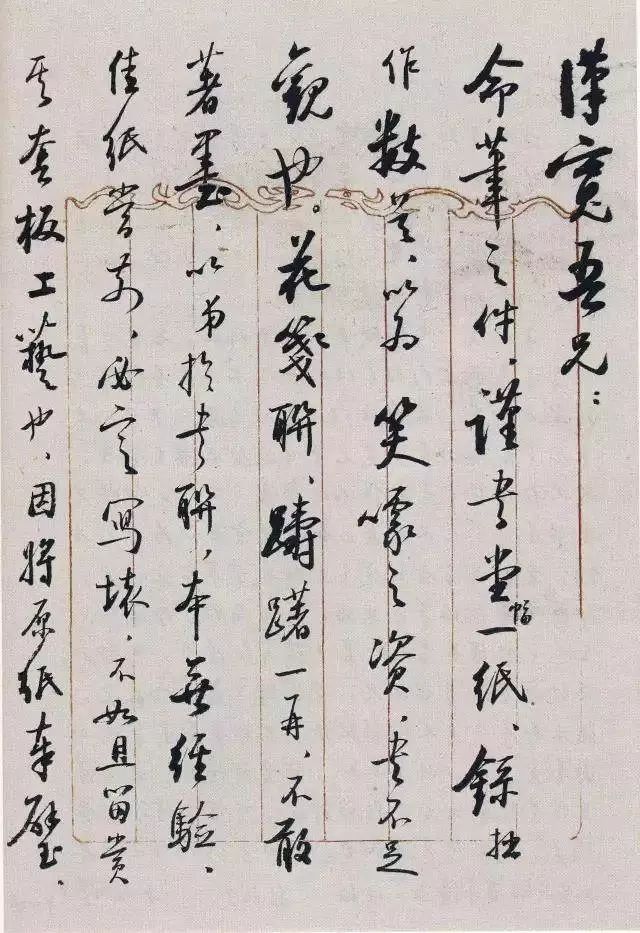 汉宽吾兄：
命笔之件，谨书堂幅一纸、录拙
作数首，以为笑噱之资，书不足
观也。花笺联、踌躇一再，不敢
著墨、以弟于书联，本无经验、
佳纸当前，必定写坏，不如且留赏
其套板工艺也、因将原纸奉璧、